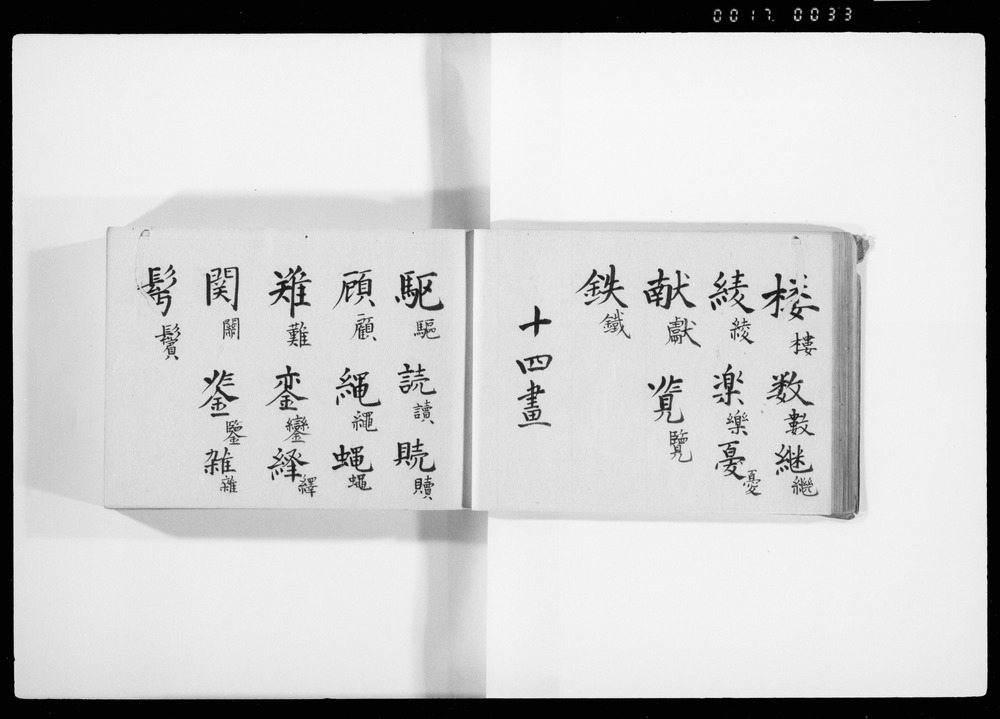 0017 0033
楼 樓 数 數 継 繼
綾 綾 楽 樂 憂 憂
献 獻 覧 覽
鉄 鐵
十四畫
駆 驅 読 讀 贖
頋 顧 縄 繩 蝿 蠅
难 難 銮 鑾 繹
関 關 鉴 鑒 雑 雜
鬢